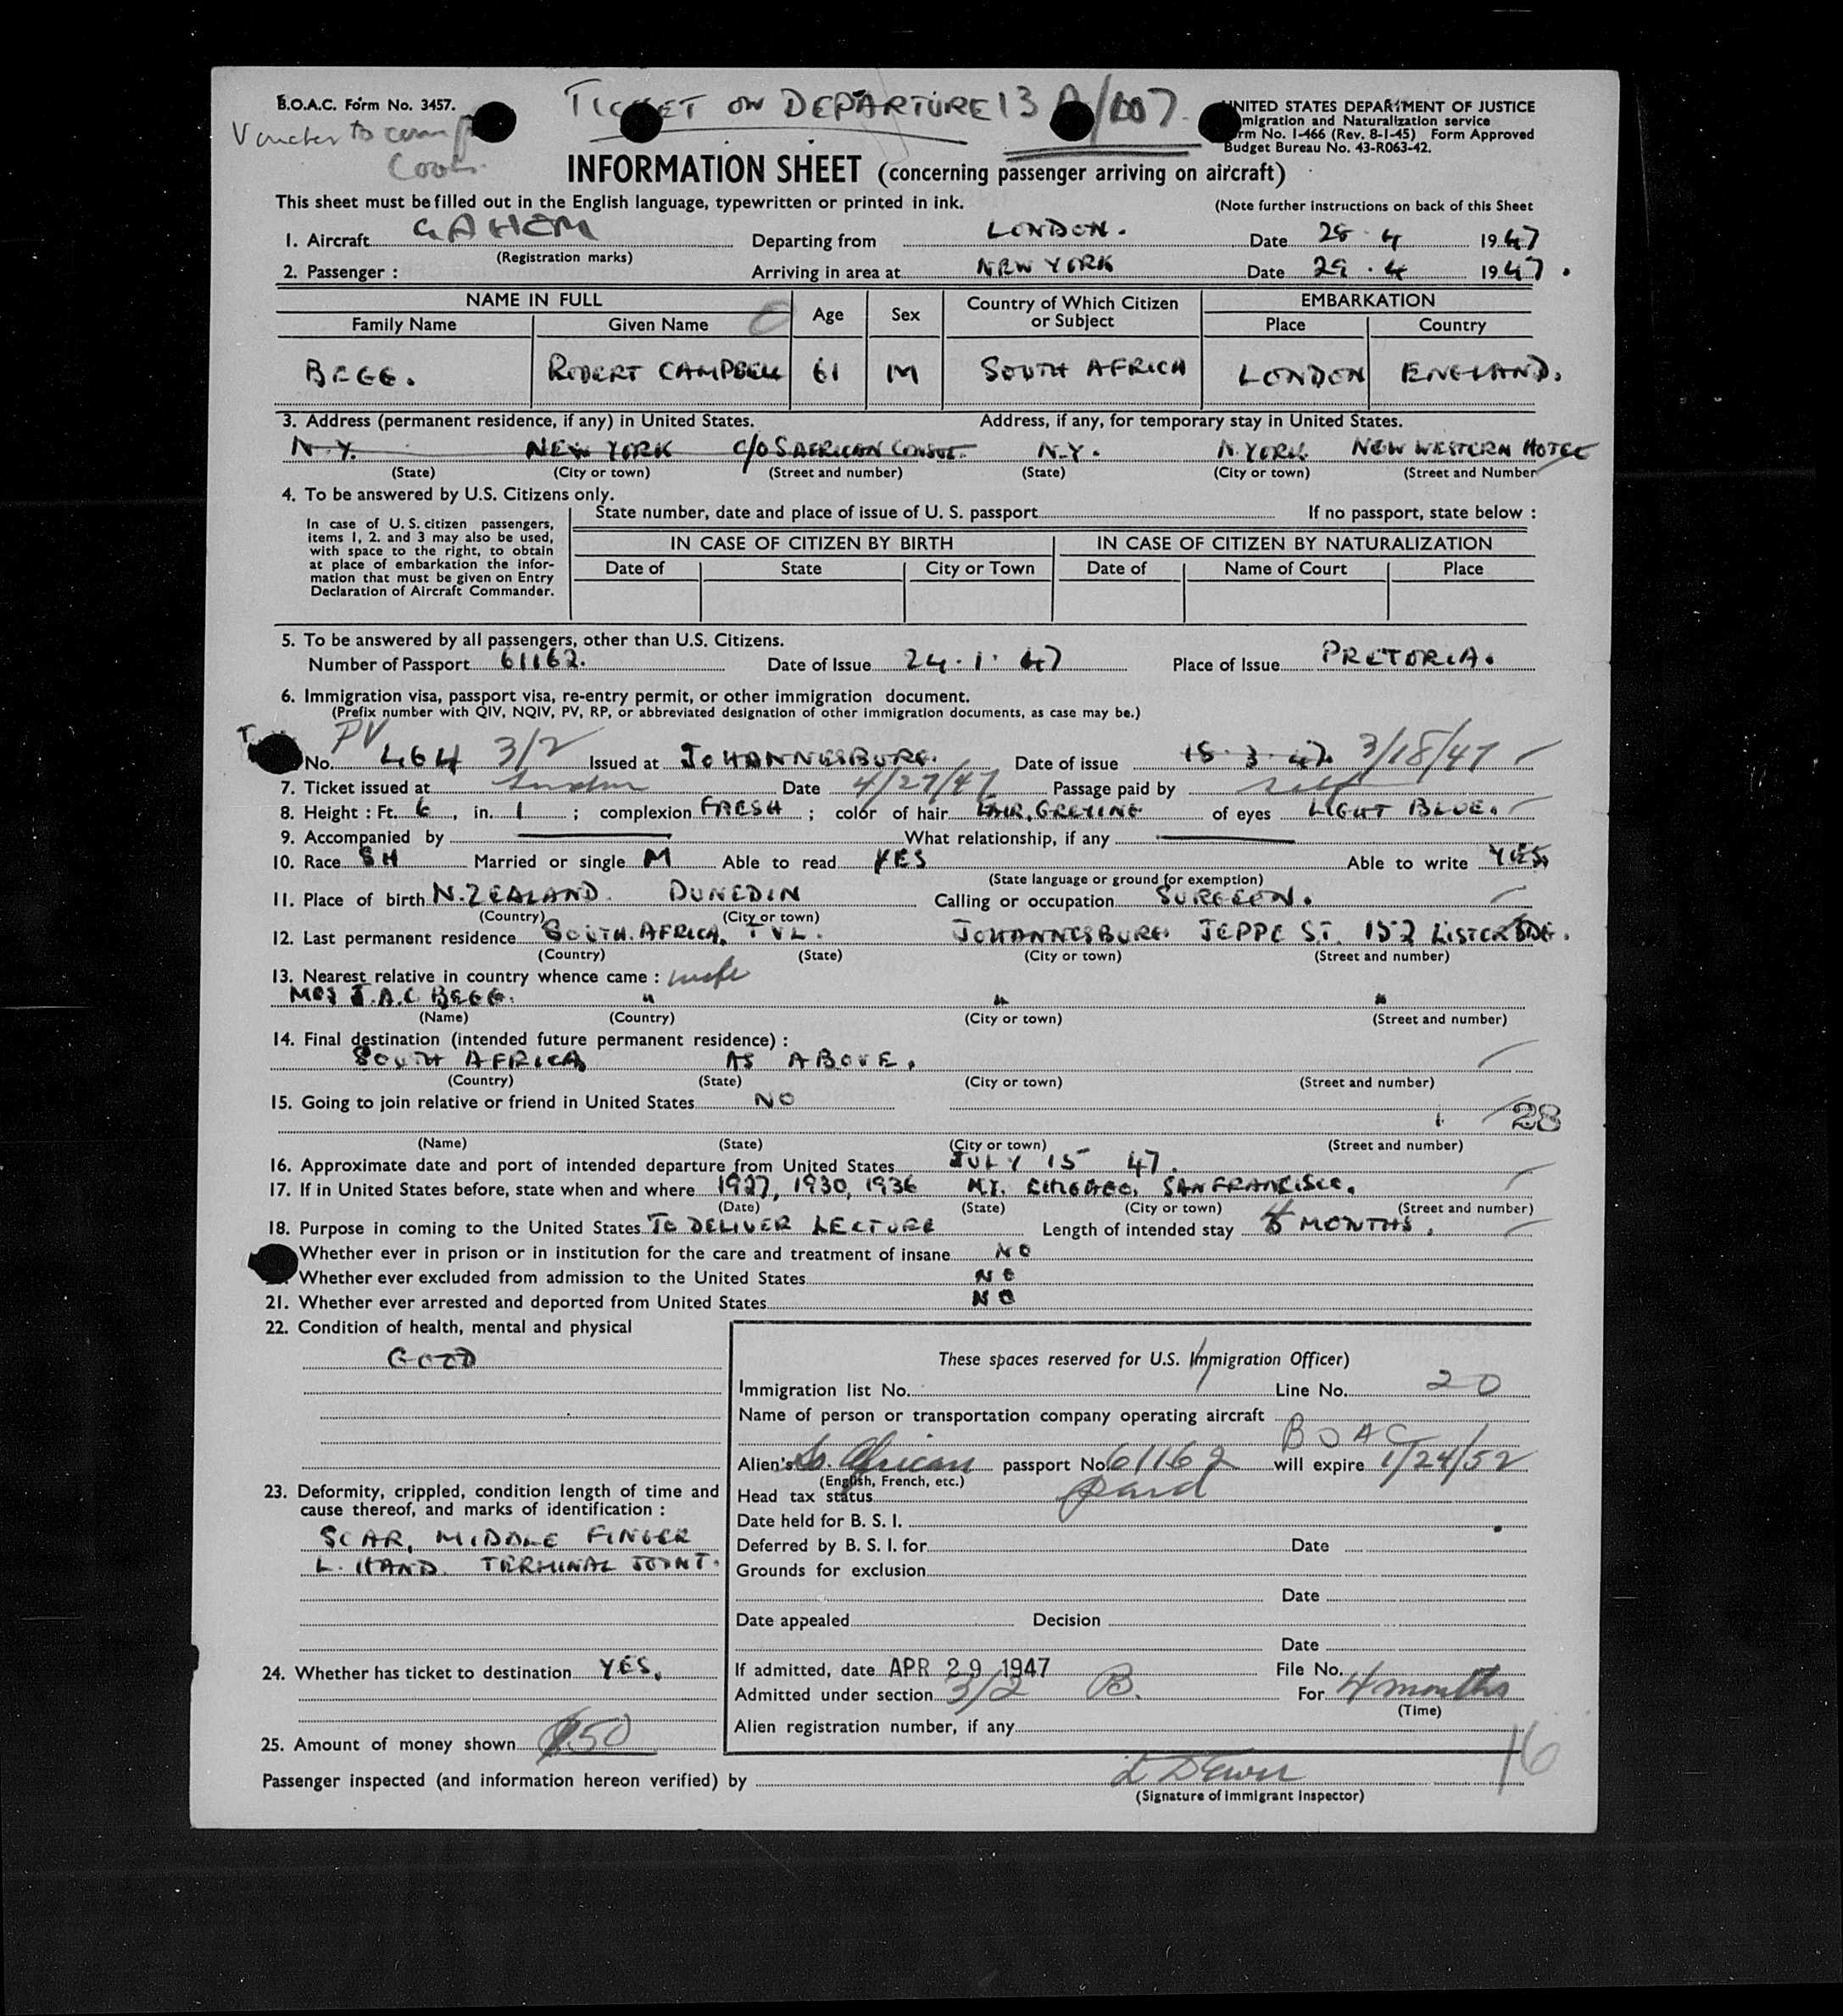 B.O.A.C. Form No. 3457.
TICKET ON DEPARTURE 13 /007.
UNITED STATES DEPARTMENT OF JUSTICE
Voucher to
migration and Naturalization service
rm No. I-466 (Rev. 8-1-45) Form Approved
Budget Bureau No. 43-R063-42.
INFORMATION SHEET (concerning passenger arriving on aircraft)
This sheet must be filled out in the English language, typewritten or printed in ink. (Note further instructions on back of this Sheet
1. Aircraft GAHEM Departing from LONDON. Date 28.4 1947
(Registration marks)
2. Passenger : Arriving in area at NEW YORK Date 29.4 1947.
NAME IN FULL Age Sex Country of Which Citizen or Subject EMBARKATION
Family Name Given Name Place Country
BEGG. ROBERT CAMPBELL 61 M SOUTH AFRICA LONDON ENGLAND.
3. Address (permanent residence, if any) in United States. Address, if any, for temporary stay in United States.
N.Y. NEW YORK C/O S AFRICAN CONSUL. N.Y. N.YORK NEW WESTERN HOTEL
(State) (City or town) (Street and number) (State) (City or town) (Street and Number
4. To be answered by U.S. Citizens only.
State number, date and place of issue of U. S. passport If no passport, state below :
In case of U. S. citizen passengers,
items 1, 2. and 3 may also be used,
with space to the right, to obtain
at place of embarkation the infor-
mation that must be given on Entry
Declaration of Aircraft Commander.
IN CASE OF CITIZEN BY BIRTH IN CASE OF CITIZEN BY NATURALIZATION
Date of State City or Town Date of Name of Court Place
5. To be answered by all passengers, other than U.S. Citizens.
Number of Passport 61162. Date of Issue 24.1.47 Place of Issue PRETORIA.
6. Immigration visa, passport visa, re-entry permit, or other immigration document.
(Prefix number with QIV, NQIV, PV, RP, or abbreviated designation of other immigration documents, as case may be.)
PV
No. 464 3/2 Issued at JOHANNESBURG. Date of issue 18.3.47. 3/18/47
7. Ticket issued at London Date 4/27/47 Passage paid by self
8. Height : Ft. 6, in. 1 ; complexion FRESH ; color of hair FAIR, GREYING of eyes LIGHT BLUE.
9. Accompanied by What relationship, if any
10. Race SH Married or single M Able to read YES Able to write YES
(State language or ground for exemption)
11. Place of birth N.ZEALAND. DUNEDIN Calling or occupation SURGEON.
(Country) (City or town)
12. Last permanent residence SOUTH AFRICA, TVL. JOHANNESBURG JEPPE ST. 152 LISTER BDG.
(Country) (State) (City or town) (Street and number)
13. Nearest relative in country whence came : wife
MRS J.A.C. BEGG. " " "
(Name) (Country) (City or town) (Street and number)
14. Final destination (intended future permanent residence) :
SOUTH AFRICA AS ABOVE.
(Country) (State) (City or town) (Street and number)
15. Going to join relative or friend in United States NO
28
(Name) (State) (City or town) (Street and number)
16. Approximate date and port of intended departure from United States JULY 15 47.
17. If in United States before, state when and where 1927, 1930, 1936 N.Y. CHICAGO, SAN FRANCISCO.
(Date) (State) (City or town) (Street and number)
18. Purpose in coming to the United States TO DELIVER LECTURE Length of intended stay 4 MONTHS.
Whether ever in prison or in institution for the care and treatment of insane NO
Whether ever excluded from admission to the United States NO
21. Whether ever arrested and deported from United States NO
22. Condition of health, mental and physical
GOOD
These spaces reserved for U.S. Immigration Officer)
Immigration list No. Line No. 20
Name of person or transportation company operating aircraft
BOAC
Alien's So. African passport No 61162 will expire 1/24/52
(English, French, etc.)
Head tax status paid
Date held for B. S. I.
Deferred by B. S. I. for Date
Grounds for exclusion
Date
Date appealed Decision
Date
If admitted, date APR 29 1947 File No.
Admitted under section 3/2 B. For 4 months
(Time)
Alien registration number, if any
23. Deformity, crippled, condition length of time and
cause thereof, and marks of identification :
SCAR, MIDDLE FINGER
L. HAND. TERMINAL JOINT.
24. Whether has ticket to destination YES.
25. Amount of money shown $50
16
Passenger inspected (and information hereon verified) by
(Signature of immigrant Inspector)